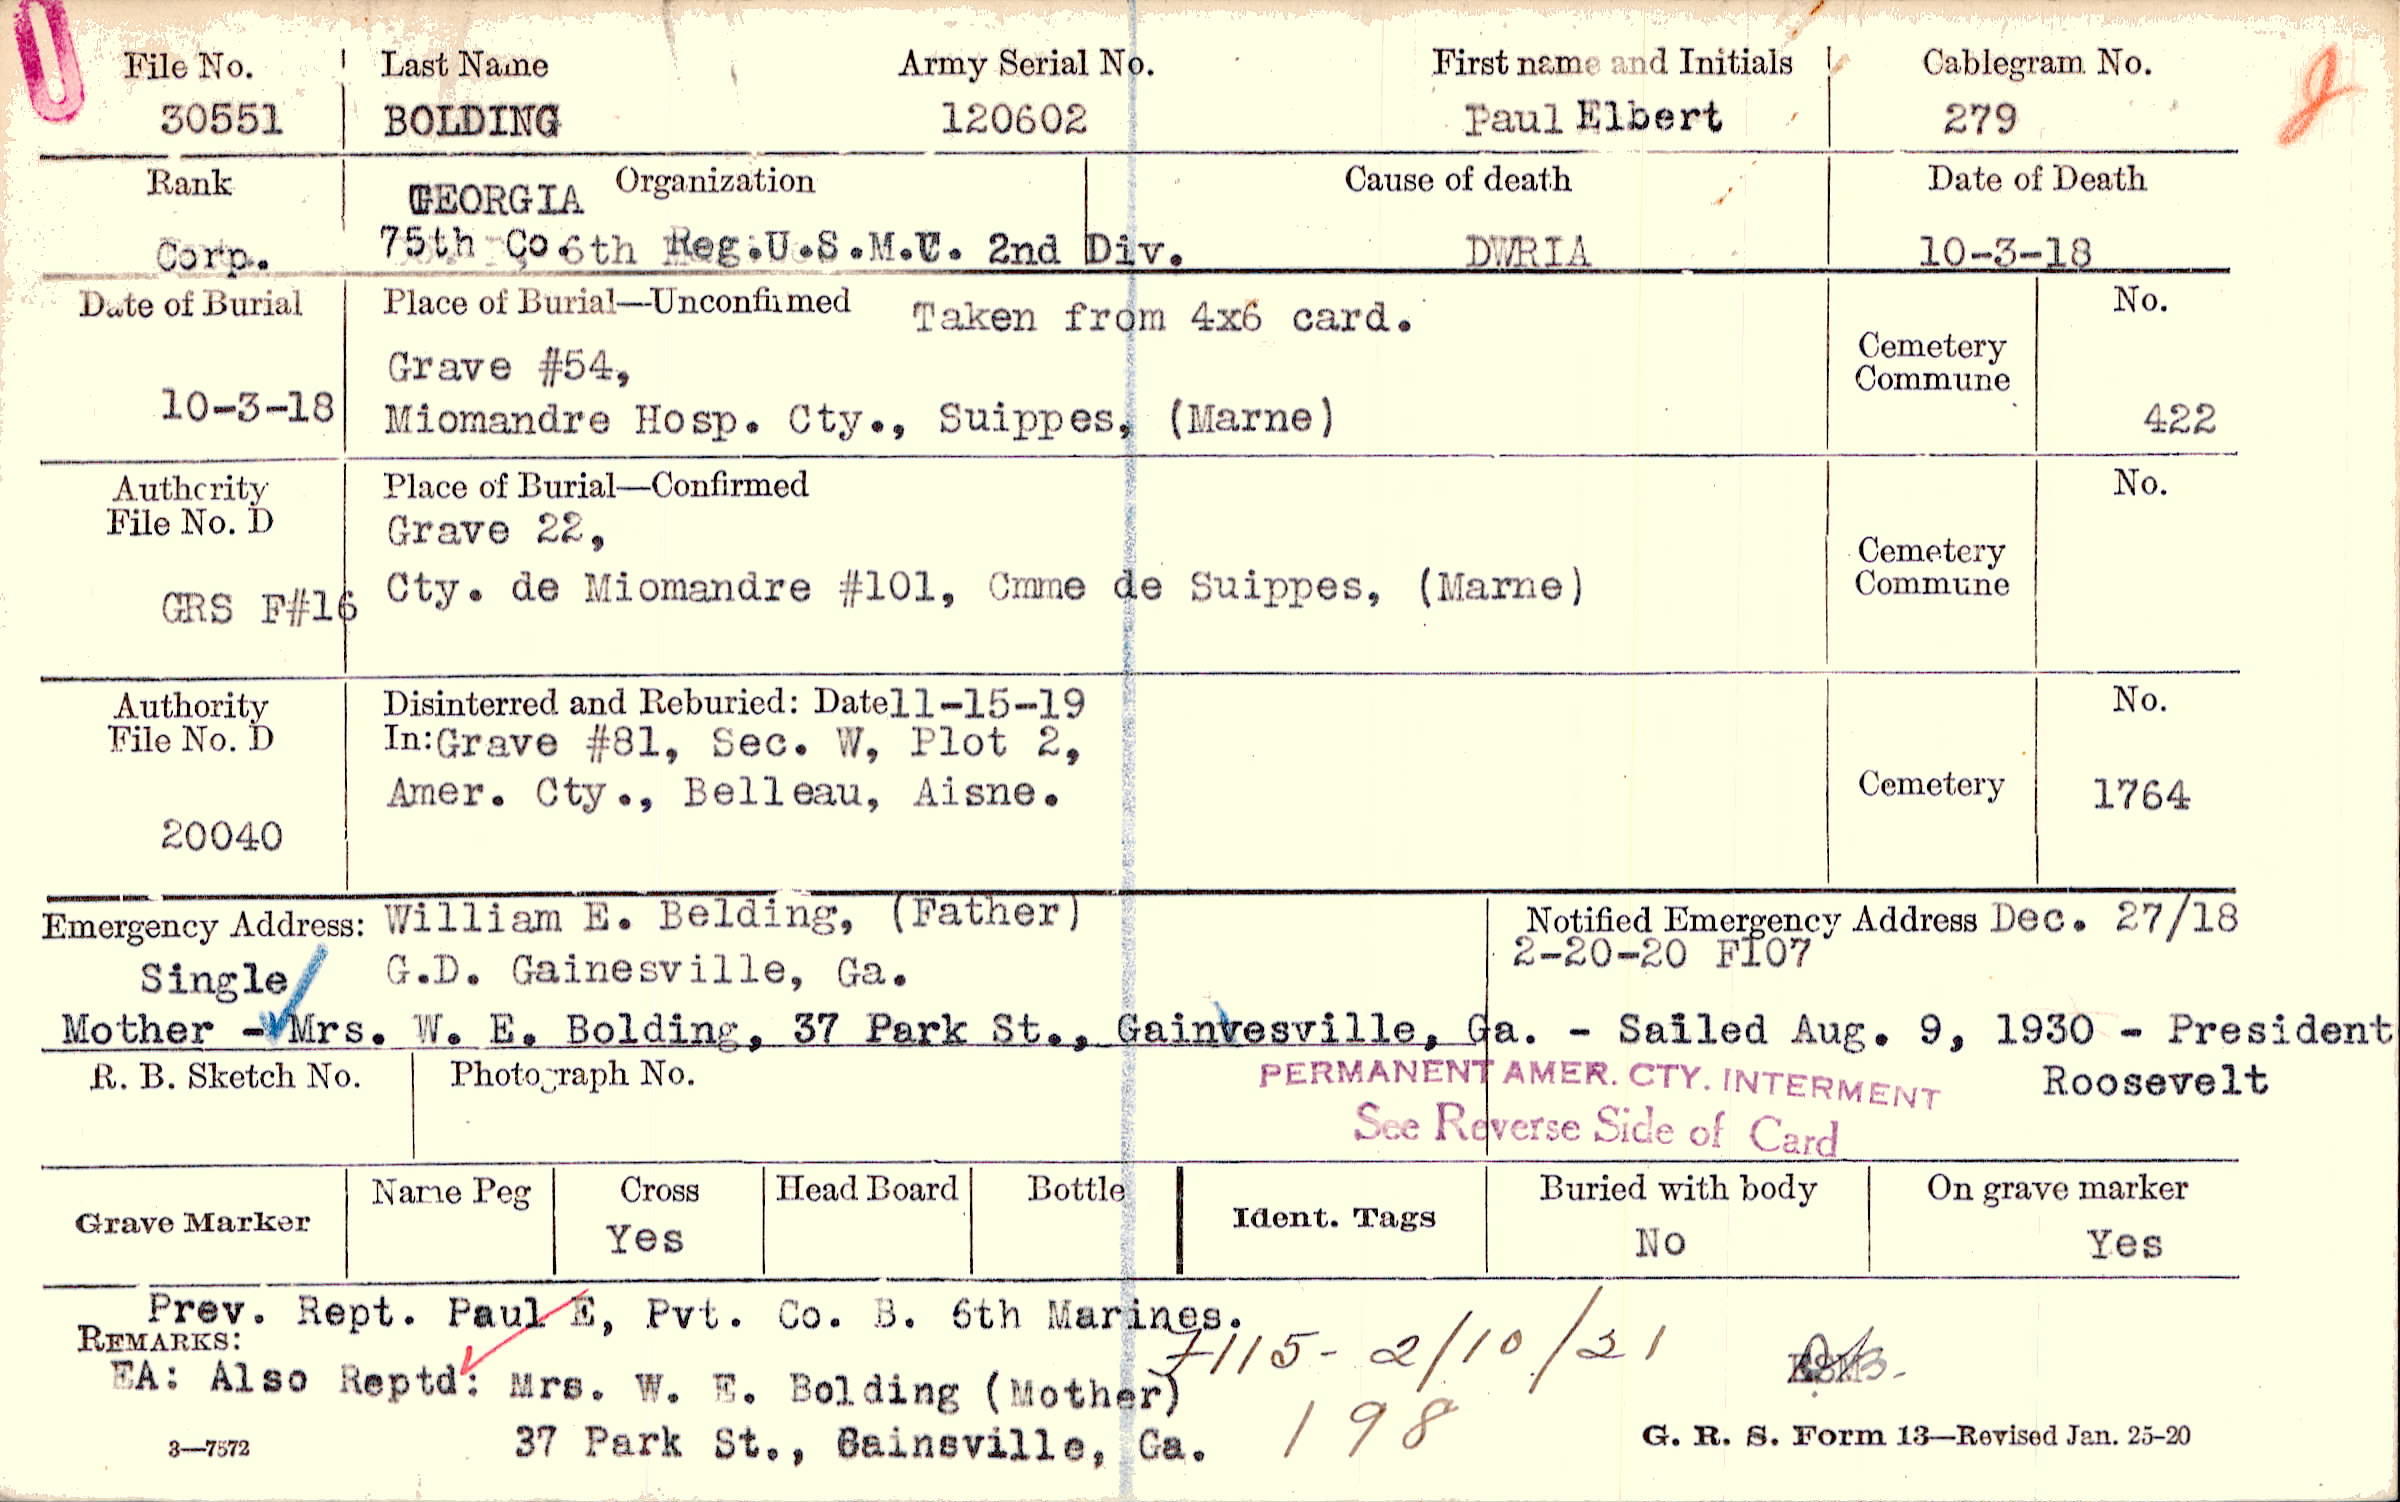 File No. Last Name Army Serial No. First name and Initials Cablegram No.
30551 BOLDING 120602 Paul Elbert 279
Rank GEORGIA Organization Cause of death Date of Death
Corp. 75th Co. 6th Reg. U.S.M.C. 2nd Div. DWRIA 10-3-18
Date of Burial Place of Burial—Unconfirmed Taken from 4x6 card. No.
Grave #54, Cemetery
Commune
10-3-18 Miomandre Hosp. Cty., Suippes, (Marne) 422
Authority Place of Burial—Confirmed No.
File No. D Grave 22,
Cemetery
GRS F#16 Cty. de Miomandre #101, Cmme de Suippes, (Marne) Commune
Authority Disinterred and Reburied: Date 11-15-19 No.
File No. D In: Grave #81, Sec. W, Plot 2,
Amer. Cty., Belleau, Aisne. Cemetery 1764
20040
Emergency Address: William E. Belding, (Father) Notified Emergency Address Dec. 27/18
2-20-20 F107
Single G.D. Gainesville, Ga.
Mother - Mrs. W. E. Bolding, 37 Park St., Gainvesville, Ga. - Sailed Aug. 9, 1930 - President
R. B. Sketch No. Photograph No. PERMANENT AMER. CTY. INTERMENT Roosevelt
See Reverse Side of Card
Grave Marker Name Peg Cross Head Board Bottle Ident. Tags Buried with body On grave marker
Yes No Yes
Prev. Rept. Paul E, Pvt. Co. B. 6th Marines.
REMARKS: 7115- 2/10/21
EA: Also Reptd: Mrs. W. E. Bolding (Mother)
37 Park St., Gainsville, Ga. 198
3—7572 G. R. S. Form 13—Revised Jan. 25-20